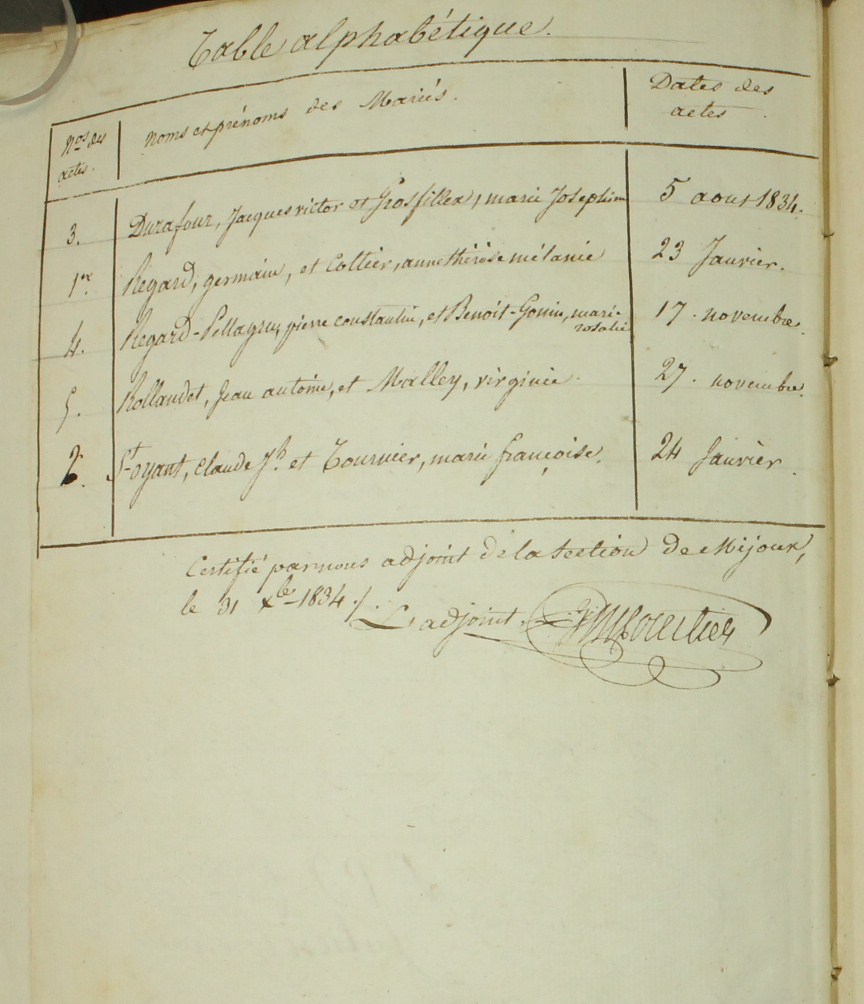 Table alphabétique.
Nos des actes.
Noms et prénoms des Mariés.
Dates des actes.
3. Durafour, Jacques victor et Grosfillex, marie Josephine 5 aout 1834.
1er. Regard, germain, et Cottier, anne thérèse mélanie 23 Janvier.
4. Regard-Pellagru, pierre constantin, et Benoit-Gonin, marie rosalie 17. novembre.
5. Rollandet, Jean antoine, et Malley, virginie. 27. novembre.
2. St oyant, Claude Jh. et Tournier, marie françoise. 24 Janvier.
Certifié par nous adjoint de la section de Mijoux,
le 31 Xbre 1834./.
L'adjoint.